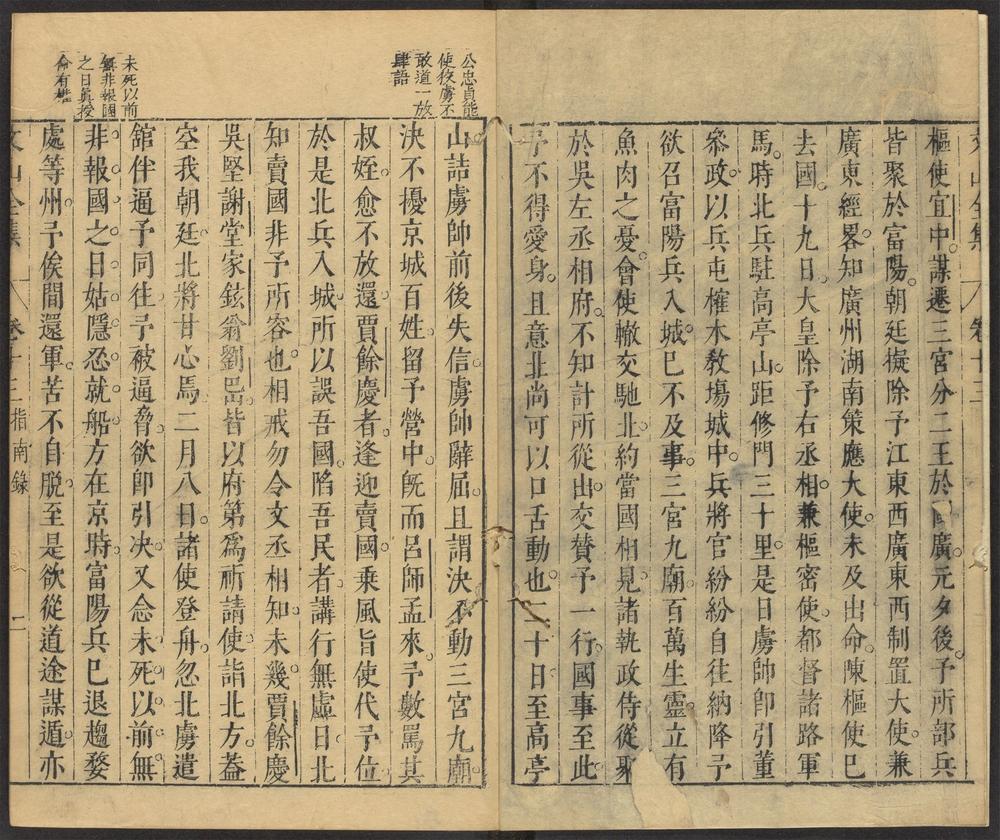 樞使宜中謀遷三宮分二王於閩廣元夕後予所部兵
皆聚於富陽朝廷擬除予江東西廣東西制置大使兼
廣東經畧知廣州湖南策應大使未及出命陳樞使巳
去國十九日大皇除予右丞相兼樞密使都督諸路軍
馬時北兵駐高亭山距修門三十里是日虜帥卽引董
叅政以兵屯榷木敎塲城中兵將官紛紛自往納降予
欲召富陽兵入城巳不及事三宮九廟百萬生靈立有
魚肉之憂會使轍交馳北約當國相見諸執政侍從聚
於吳左丞相府不知計所從出交贊予一行國事至此
予不得愛身且意北尚可以口舌動也二十日至高亭
公忠貞能
使狡虜不
敢道一放
肆語
山詰虜帥前後失信虜帥辭屈且謂決不動三宮九廟
決不擾京城百姓留予營中旣而呂師孟來予數罵其
叔姪愈不放還賈餘慶者逢迎賣國乘風旨使代予位
於是北兵入城所以誤吾國陷吾民者講行無虛日北
知賣國非予所容也相戒勿令文丞相知未幾賈餘慶
吳堅謝堂家鉉翁劉岊皆以府第爲祈請使詣北方葢
空我朝廷北將甘心焉二月八日諸使登舟忽北虜遣
舘伴逼予同往予被逼脅欲卽引决又念未死以前無
非報國之日姑隱忍就船方在京時富陽兵巳退趨婺
處等州予俟間還軍苦不自脫至是欲從道途謀遁亦
未死以前
無非報國
之日眞授
命有
卷十三
指南錄
二